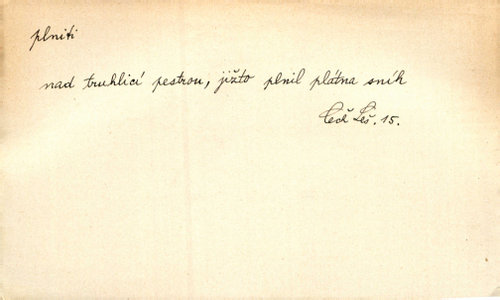 plniti
nad truhlicí pestrou, jižto plnil plátna sníh
Čech Leš. 15.